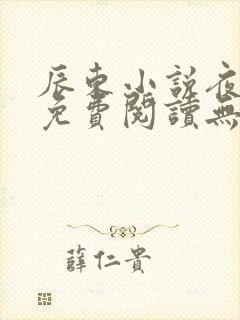 辰東小說夜
免費閱讀無
薛仁貴